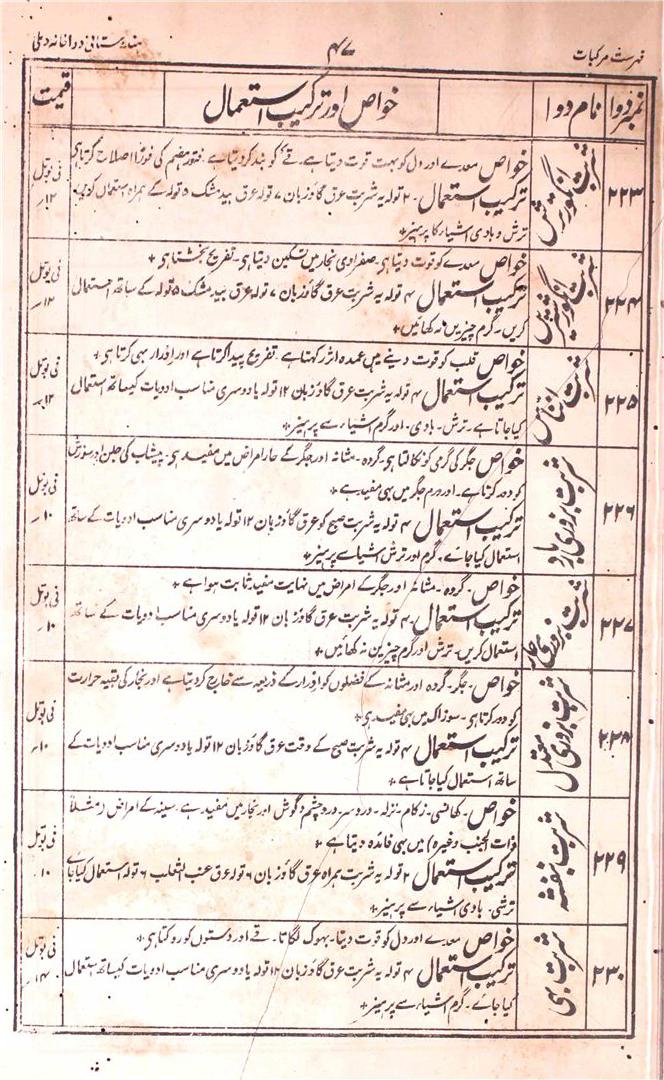 فہرست مرکبات ۴۷ ہندوستانی دواخانہ دہلی
نمبر دوا نام دوا خواص اور ترکیب استعمال قیمت
۲۲۳ شربت انگور ترش
خواص معدے اور دل کو بہت قوت دیتا ہے۔ قے کو بند کردیتا ہے۔ فتور ہضم کی فوراً اصلاح کرتا ہی
ترکیب استعمال۔ ۲ تولہ یہ شربت عرق گاؤزبان ۷ تولہ عرق بید مشک ۵ تولہ کے ہمراہ استعمال کریں۔
ترش و بادی اشیاء کا پرہیز ٭
فی بوتل
۱۲؍
۲۲۴ شربت انگور شیریں
خواص معدے کو قوت دیتا ہی۔ صفراوی بخار میں تسکین دیتا ہی۔ تفریح بخشتا ہی ٭
ترکیب استعمال ۴ تولہ یہ شربت عرق گاؤزبان ۷ تولہ عرق بید مشک ۵ تولہ کے ساتھ استعمال
کریں۔ گرم چیزیں نہ کھائیں ٭
فی بوتل
۱۲؍
۲۲۵ شربت انناس
خواص قلب کو قوت دینے میں عمدہ اثر رکہتا ہے۔ تفریح پیدا کرتا ہے اور اِدرار بہی کرتا ہی ٭
ترکیب استعمال ۴ تولہ یہ شربت عرق گاؤزبان ۱۲ تولہ یا دوسری مناسب ادویات کیساتھ استعمال
کیا جاتا ہے۔ ترش۔ بادی۔ اور گرم اشیاء سے پرہیز ٭
فی بوتل
۱۲؍
۲۲۶ شربت بزوری بارد
خواص جگر کی گرمی کو نکالتا ہی۔ گردہ۔ مثانہ اور جگر کے حار امراض میں مفید ہی۔ پیشاب کی جلن اور سوزش
کو دور کرتا ہے۔ اور ورم جگر میں بہی مفید ہے ٭
ترکیب استعمال ۴ تولہ یہ شربت صبح کو عرق گاؤزبان ۱۲ تولہ یا دوسری مناسب ادویات کے ساتھ
استعمال کیا جائے۔ گرم اور ترش اشیا سے پرہیز ٭
فی بوتل
۱۰؍
۲۲۷ شربت بزوری حار
خواص۔ گردہ۔ مثانہ اور جگر کے امراض میں نہایت مفید ثابت ہوا ہے ٭
ترکیب استعمال۔ ۴ تولہ یہ شربت عرق گاؤزبان ۱۲ تولہ یا دوسری مناسب ادویات کے ساتھ
استعمال کریں۔ ترش اور گرم چیزیں نہ کھائیں ٭
فی بوتل
۱۰؍
۲۲۸ شربت بزوری معتدل
خواص۔ جگر۔ گردہ اور مثانہ کے فضلوں کو اِدرار کے ذریعہ سے خارج کردیتا ہے اور بخار کی بقیہ حرارت
کو دور کرتا ہی۔ سوزاک میں بہی مفید ہی ٭
ترکیب استعمال ۴ تولہ یہ شربت صبح کے وقت عرق گاؤزبان ۱۲ تولہ یا دوسری مناسب ادویات کے
ساتھ استعمال کیا جاتا ہے ٭
فی بوتل
۱۰؍
۲۲۹ شربت بنفشہ
خواص۔ کھانسی۔ زکام۔ نزلہ۔ درد سر۔ درد چشم و گوش اور بخار میں مُفید ہے۔ سینہ کے امراض (مثلاً
ذات الجنب وغیرہ) میں بہی فائدہ دیتا ہے ٭
ترکیب استعمال ۲ تولہ یہ شربت ہمراہ عرق گاؤزبان ۶ تولہ عرق عنب الثعلب ۶ تولہ استعمال کیا جائے
ترشی۔ بادی اشیاء سے پرہیز ٭
فی بوتل
۱۰؍
۲۳۰ شربت بہی
خواص معدے اور دل کو قوت دیتا۔ بھوک لگاتا۔ قے اور دستوں کو روکتا ہی ٭
ترکیب استعمال ۴ تولہ یہ شربت عرق گاؤزبان ۱۲ تولہ یا دوسری مناسب ادویات کیساتھ استعمال
کیا جائے۔ گرم اشیاء سے پرہیز ٭
فی بوتل
۱۴؍